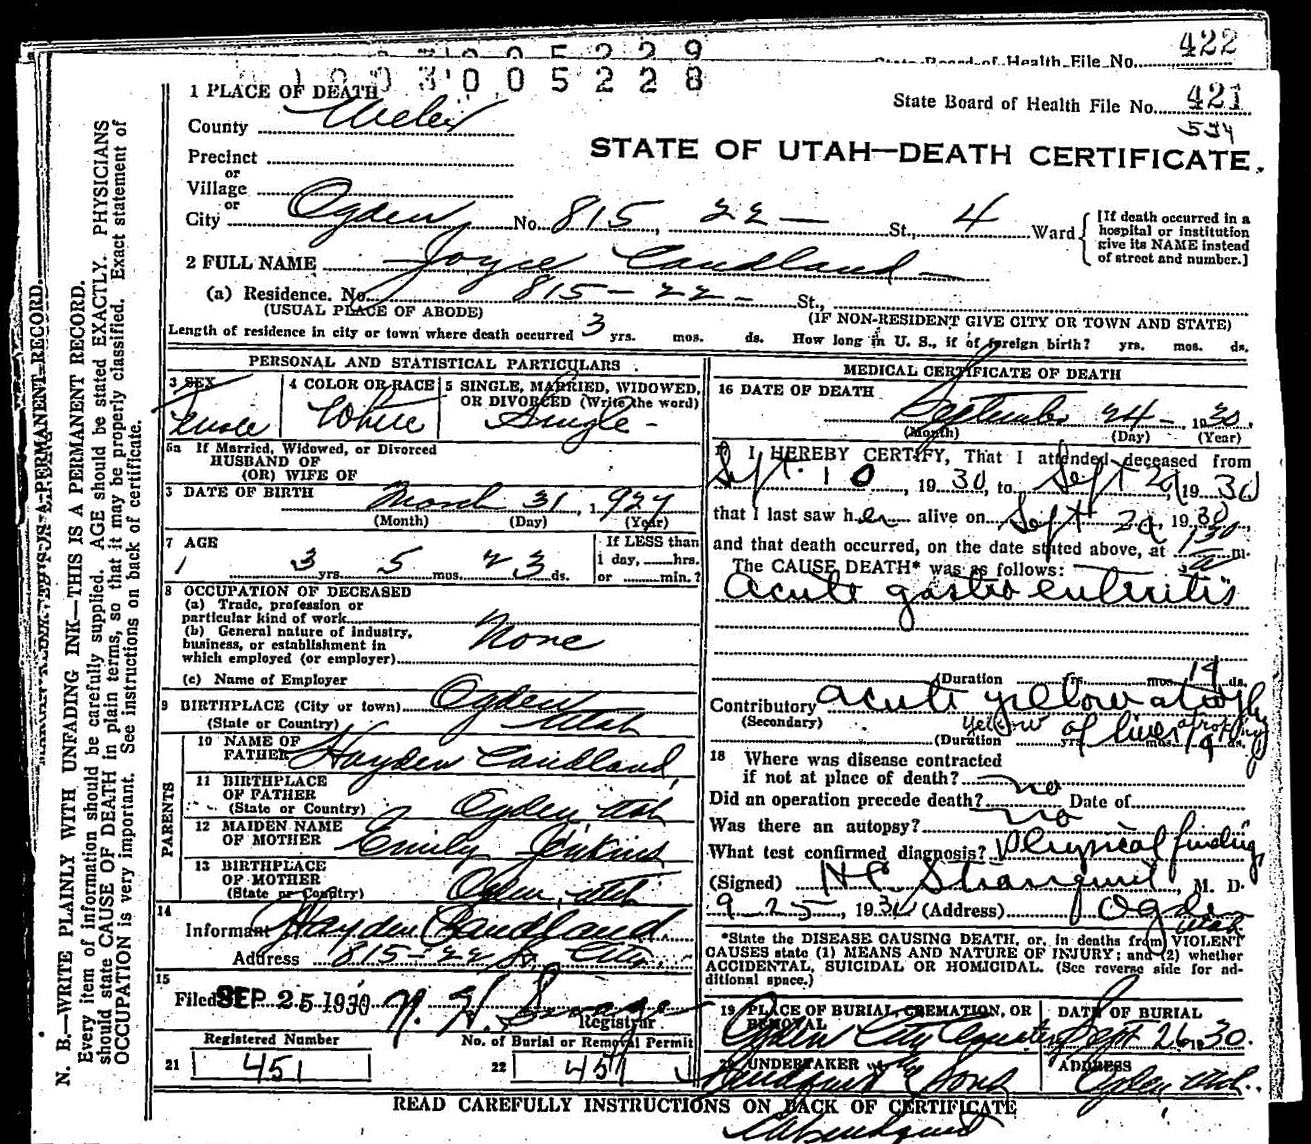 1003005229
422
State Board of Health File No.
1003005228
1 PLACE OF DEATH
State Board of Health File No. 421
534
County Weber
STATE OF UTAH—DEATH CERTIFICATE.
Precinct
or
Village
or
City Ogden No. 815, 22 — St., 4 Ward
[If death occurred in a hospital or institution give its NAME instead of street and number.]
2 FULL NAME Joyce Candland
(a) Residence. No. 815 - 22 - St.,
(USUAL PLACE OF ABODE) (IF NON-RESIDENT GIVE CITY OR TOWN AND STATE)
Length of residence in city or town where death occurred 3 yrs. mos. ds. How long in U. S., if of foreign birth? yrs. mos. ds.
PERSONAL AND STATISTICAL PARTICULARS
3 SEX
Female
4 COLOR OR RACE
White
5 SINGLE, MARRIED, WIDOWED, OR DIVORCED (Write the word)
Single -
5a If Married, Widowed, or Divorced
HUSBAND OF
(OR) WIFE OF
3 DATE OF BIRTH March 31, 1927
(Month) (Day) (Year)
7 AGE
3 yrs. 5 mos. 23 ds.
If LESS than
1 day, hrs.
or min.?
8 OCCUPATION OF DECEASED
(a) Trade, profession or
particular kind of work
(b) General nature of industry,
business, or establishment in
which employed (or employer)
None
(c) Name of Employer
9 BIRTHPLACE (City or town) Ogden
(State or Country) Utah
PARENTS
10 NAME OF
FATHER Hayden Candland
11 BIRTHPLACE
OF FATHER
(State or Country) Ogden Utah
12 MAIDEN NAME
OF MOTHER Emily Jenkins
13 BIRTHPLACE
OF MOTHER
(State or Country) Ogden, Utah
14
Informant Hayden Candland
Address 815-22 St City.
15
Filed SEP 25 1930
Registrar
Registered Number
21 451
No. of Burial or Removal Permit
22 451
MEDICAL CERTIFICATE OF DEATH
16 DATE OF DEATH
September 24 - 1930.
(Month) (Day) (Year)
17 I HEREBY CERTIFY, That I attended deceased from
Sept. 10, 1930, to Sept 24 1930
that I last saw her alive on Sept 24, 1930,
and that death occurred, on the date stated above, at 130 a m.
The CAUSE DEATH* was as follows:
acute gastro enteritis
(Duration yrs. mos. 14 ds.
Contributory acute yellow atrophy
(Secondary) yellow atrophy of liver
(Duration yrs. mos. ds.
18 Where was disease contracted
if not at place of death?
Did an operation precede death? no Date of
Was there an autopsy? no
What test confirmed diagnosis? Physical findings
(Signed) M. D.
9-25, 1930 (Address) Ogden Utah
*State the DISEASE CAUSING DEATH, or, in deaths from VIOLENT
CAUSES state (1) MEANS AND NATURE OF INJURY; and (2) whether
ACCIDENTAL, SUICIDAL OR HOMICIDAL. (See reverse side for ad-
ditional space.)
19 PLACE OF BURIAL, CREMATION, OR
REMOVAL
Ogden City Cemetery
DATE OF BURIAL
Sept 26 1930.
20 UNDERTAKER
Lindquist & Sons
ADDRESS
Ogden Utah.
READ CAREFULLY INSTRUCTIONS ON BACK OF CERTIFICATE
N. B.—WRITE PLAINLY WITH UNFADING INK—THIS IS A PERMANENT RECORD.
Every item of information should be carefully supplied. AGE should be stated EXACTLY. PHYSICIANS
should state CAUSE OF DEATH in plain terms, so that it may be properly classified. Exact statement of
OCCUPATION is very important. See instructions on back of certificate.